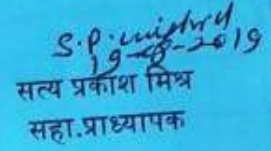 S.P. Mishra
19-8-2019
सत्य प्रकाश मिश्र
सहा.प्राध्यापक